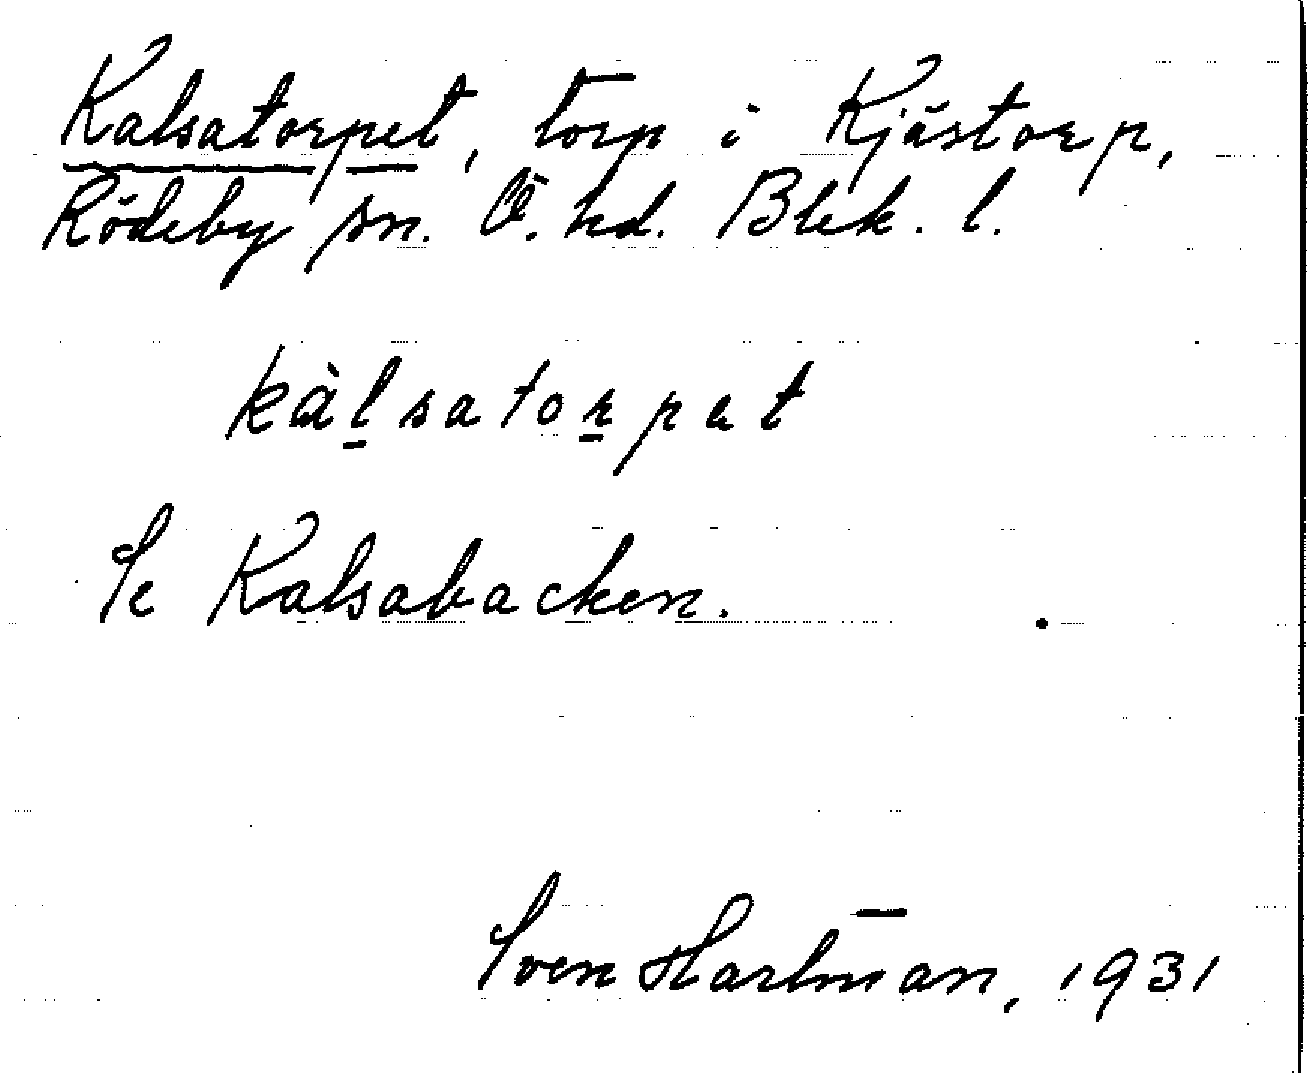 Kalsatorpet, torp i Kjästorp,
Rödeby sn. Ö. hd. Blek. l.
kàl̲sator̲pet
Se Kalsabacken.
Sven Hartman, 1931